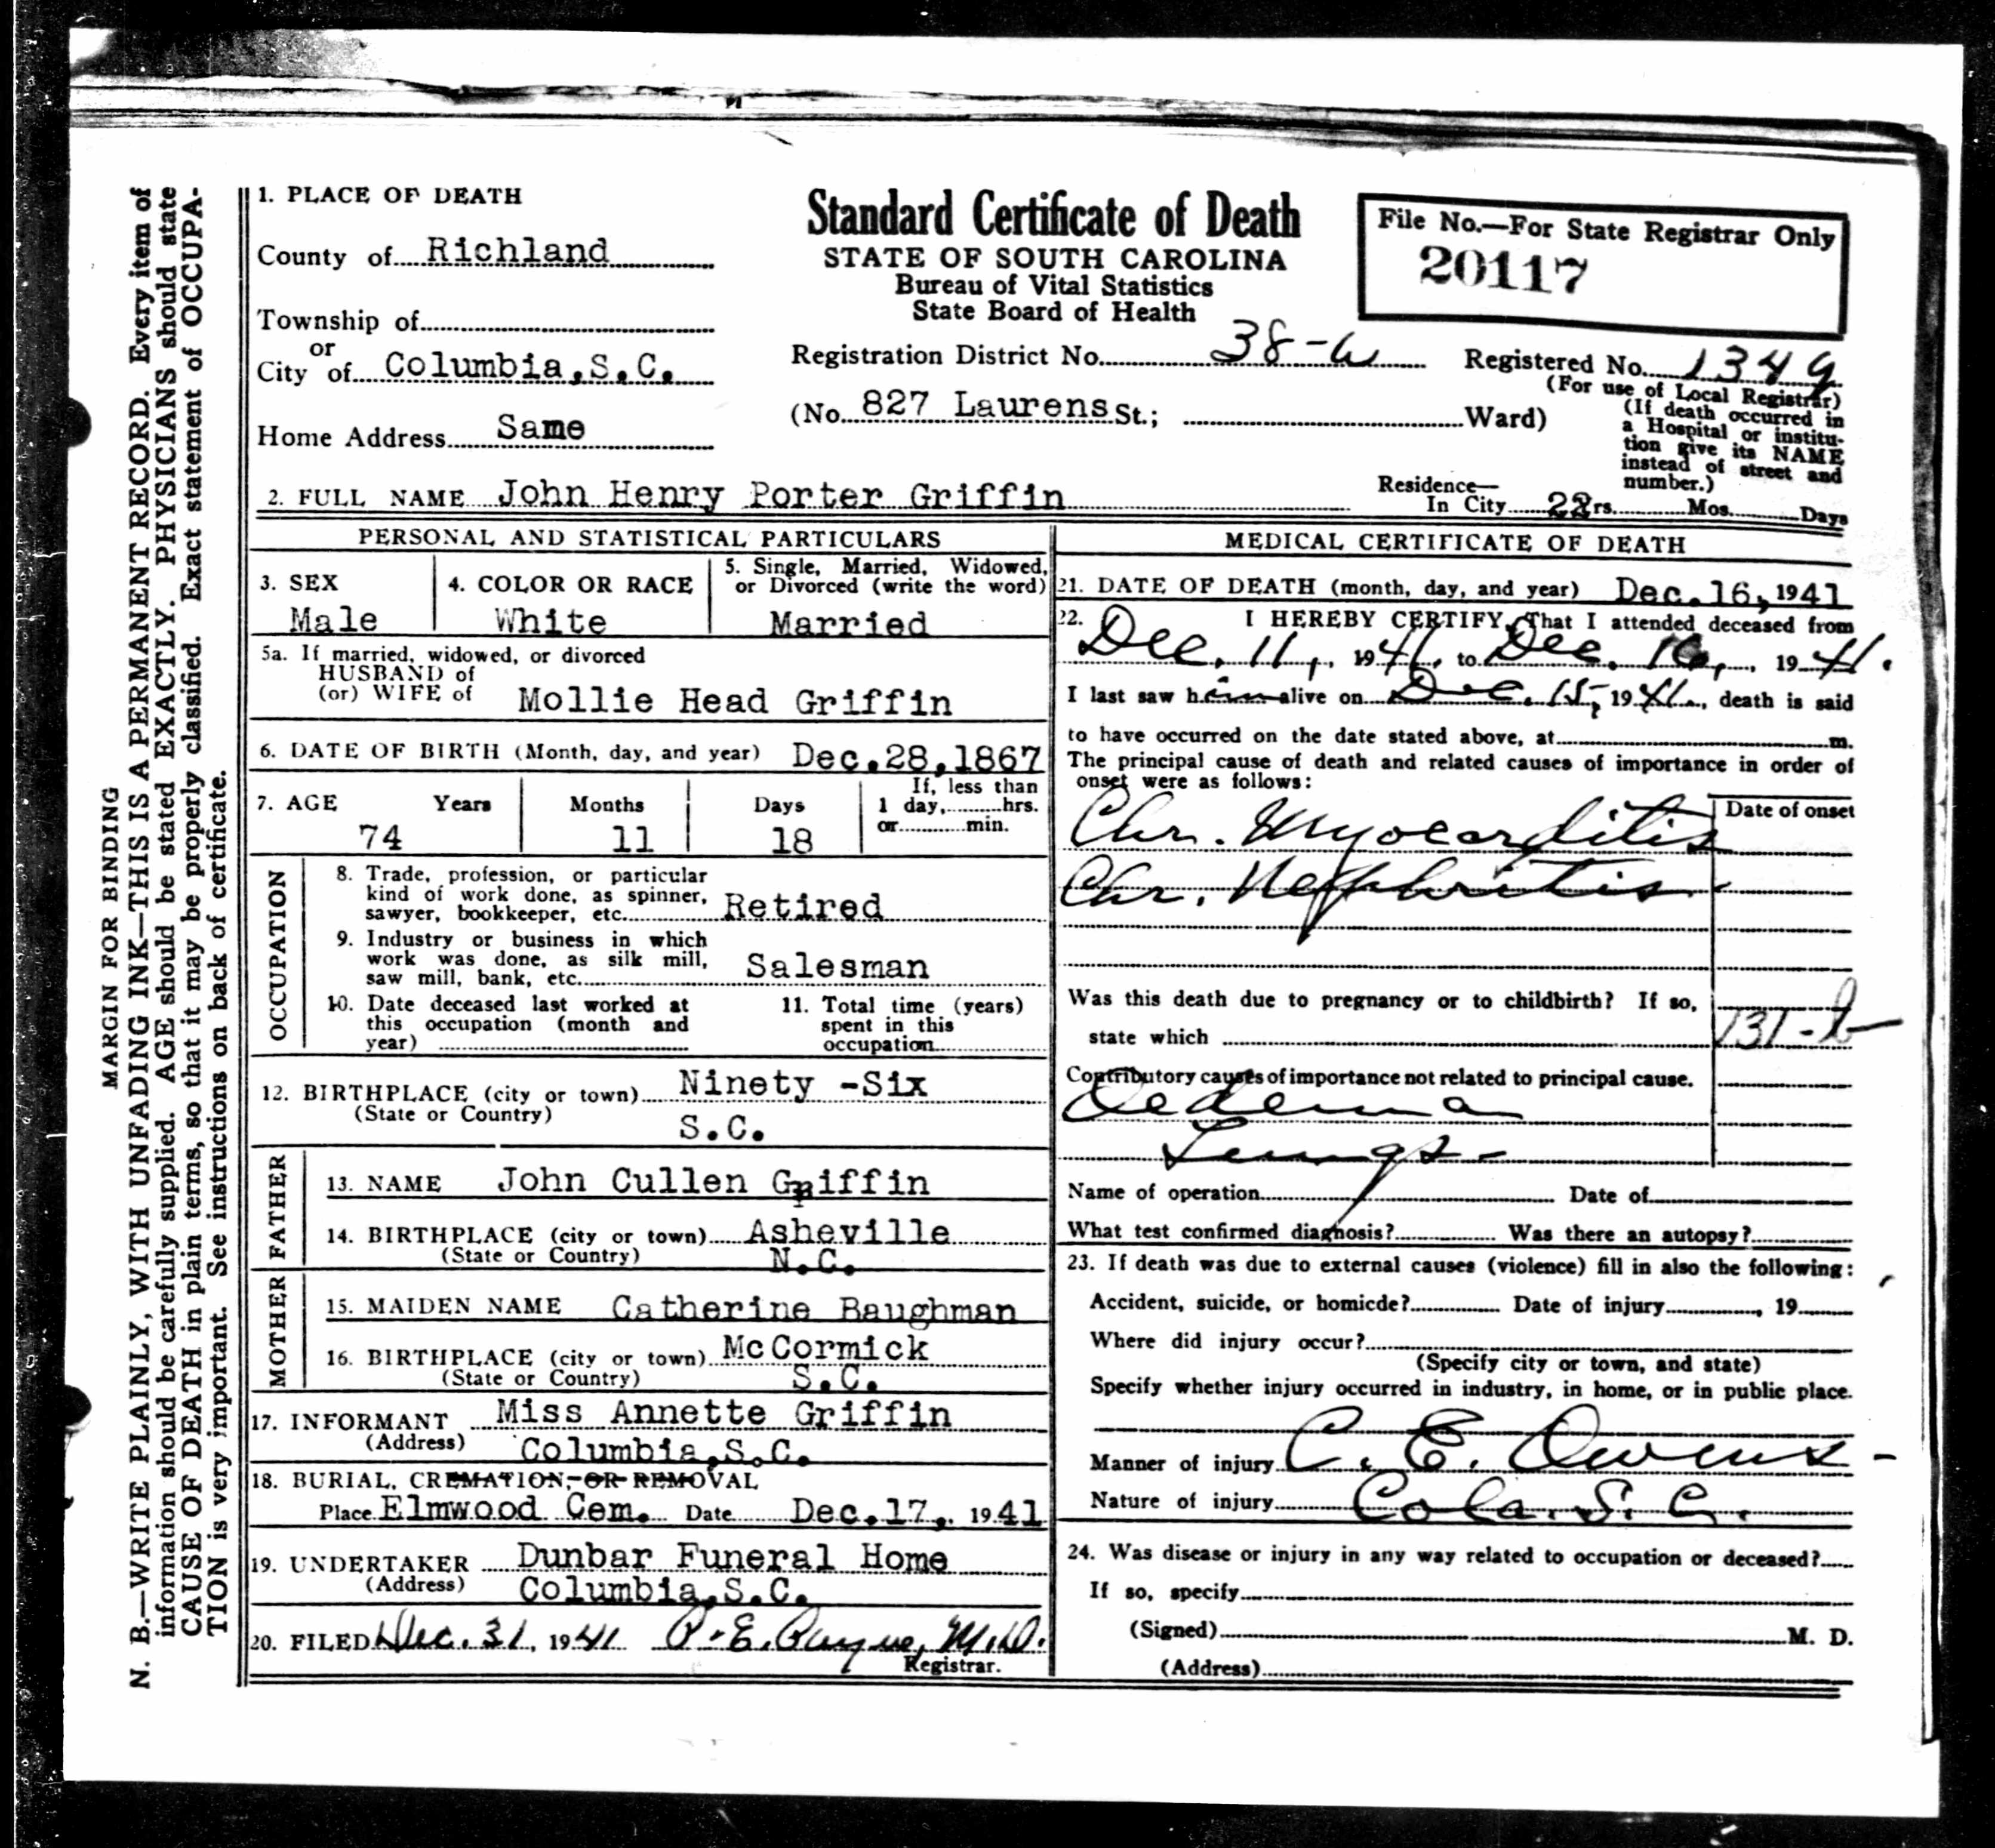 MARGIN FOR BINDING
N. B.—WRITE PLAINLY, WITH UNFADING INK—THIS IS A PERMANENT RECORD. Every item of
information should be carefully supplied. AGE should be stated EXACTLY. PHYSICIANS should state
CAUSE OF DEATH in plain terms, so that it may be properly classified. Exact statement of OCCUPA-
TION is very important. See instructions on back of certificate.
Standard Certificate of Death
STATE OF SOUTH CAROLINA
Bureau of Vital Statistics
State Board of Health
File No.—For State Registrar Only
20117
1. PLACE OF DEATH
County of Richland
Township of
or
City of Columbia,S.C.
Home Address Same
Registration District No. 38-
Registered No. 1349
(For use of Local Registrar)
(No. 827 Laurens St.; Ward)
(If death occurred in
a Hospital or institu-
tion give its NAME
instead of street and
number.)
2. FULL NAME John Henry Porter Griffin
Residence—
In City rs. Mos. Days
PERSONAL AND STATISTICAL PARTICULARS
3. SEX
Male
4. COLOR OR RACE
White
5. Single, Married, Widowed,
or Divorced (write the word)
Married
5a. If married, widowed, or divorced
HUSBAND of
(or) WIFE of Mollie Head Griffin
6. DATE OF BIRTH (Month, day, and year) Dec.28,1867
7. AGE Years Months Days
74 11 18
If, less than
1 day, hrs.
or min.
OCCUPATION
8. Trade, profession, or particular
kind of work done, as spinner,
sawyer, bookkeeper, etc. Retired
9. Industry or business in which
work was done, as silk mill,
saw mill, bank, etc. Salesman
10. Date deceased last worked at
this occupation (month and
year)
11. Total time (years)
spent in this
occupation
12. BIRTHPLACE (city or town) Ninety -Six
(State or Country) S.C.
FATHER
13. NAME John Cullen Griffin
14. BIRTHPLACE (city or town) Asheville
(State or Country) N.C.
MOTHER
15. MAIDEN NAME Catherine Baughman
16. BIRTHPLACE (city or town) McCormick
(State or Country) S.C.
17. INFORMANT Miss Annette Griffin
(Address) Columbia,S.C.
18. BURIAL, CREMATION, OR REMOVAL
Place Elmwood Cem. Date Dec.17, 1941
19. UNDERTAKER Dunbar Funeral Home
(Address) Columbia,S.C.
20. FILED Dec. 31, 1941 P. E. Payne, M.D.
Registrar.
MEDICAL CERTIFICATE OF DEATH
21. DATE OF DEATH (month, day, and year) Dec.16,1941
22. I HEREBY CERTIFY, That I attended deceased from
Dec. 11, 1941, to Dec. 16, 1941.
I last saw him alive on Dec. 15, 1941, death is said
to have occurred on the date stated above, at m.
The principal cause of death and related causes of importance in order of
onset were as follows:
Date of onset
Chr. Myocarditis
Chr. Nephritis
Was this death due to pregnancy or to childbirth? If so,
state which
131-b
Contributory causes of importance not related to principal cause.
Oedema
Lungs-
Name of operation Date of
What test confirmed diagnosis? Was there an autopsy?
23. If death was due to external causes (violence) fill in also the following:
Accident, suicide, or homicde? Date of injury , 19
Where did injury occur?
(Specify city or town, and state)
Specify whether injury occurred in industry, in home, or in public place.
Manner of injury C. E. Owens-
Nature of injury Cola. S. C.
24. Was disease or injury in any way related to occupation or deceased?
If so, specify
(Signed) M. D.
(Address)